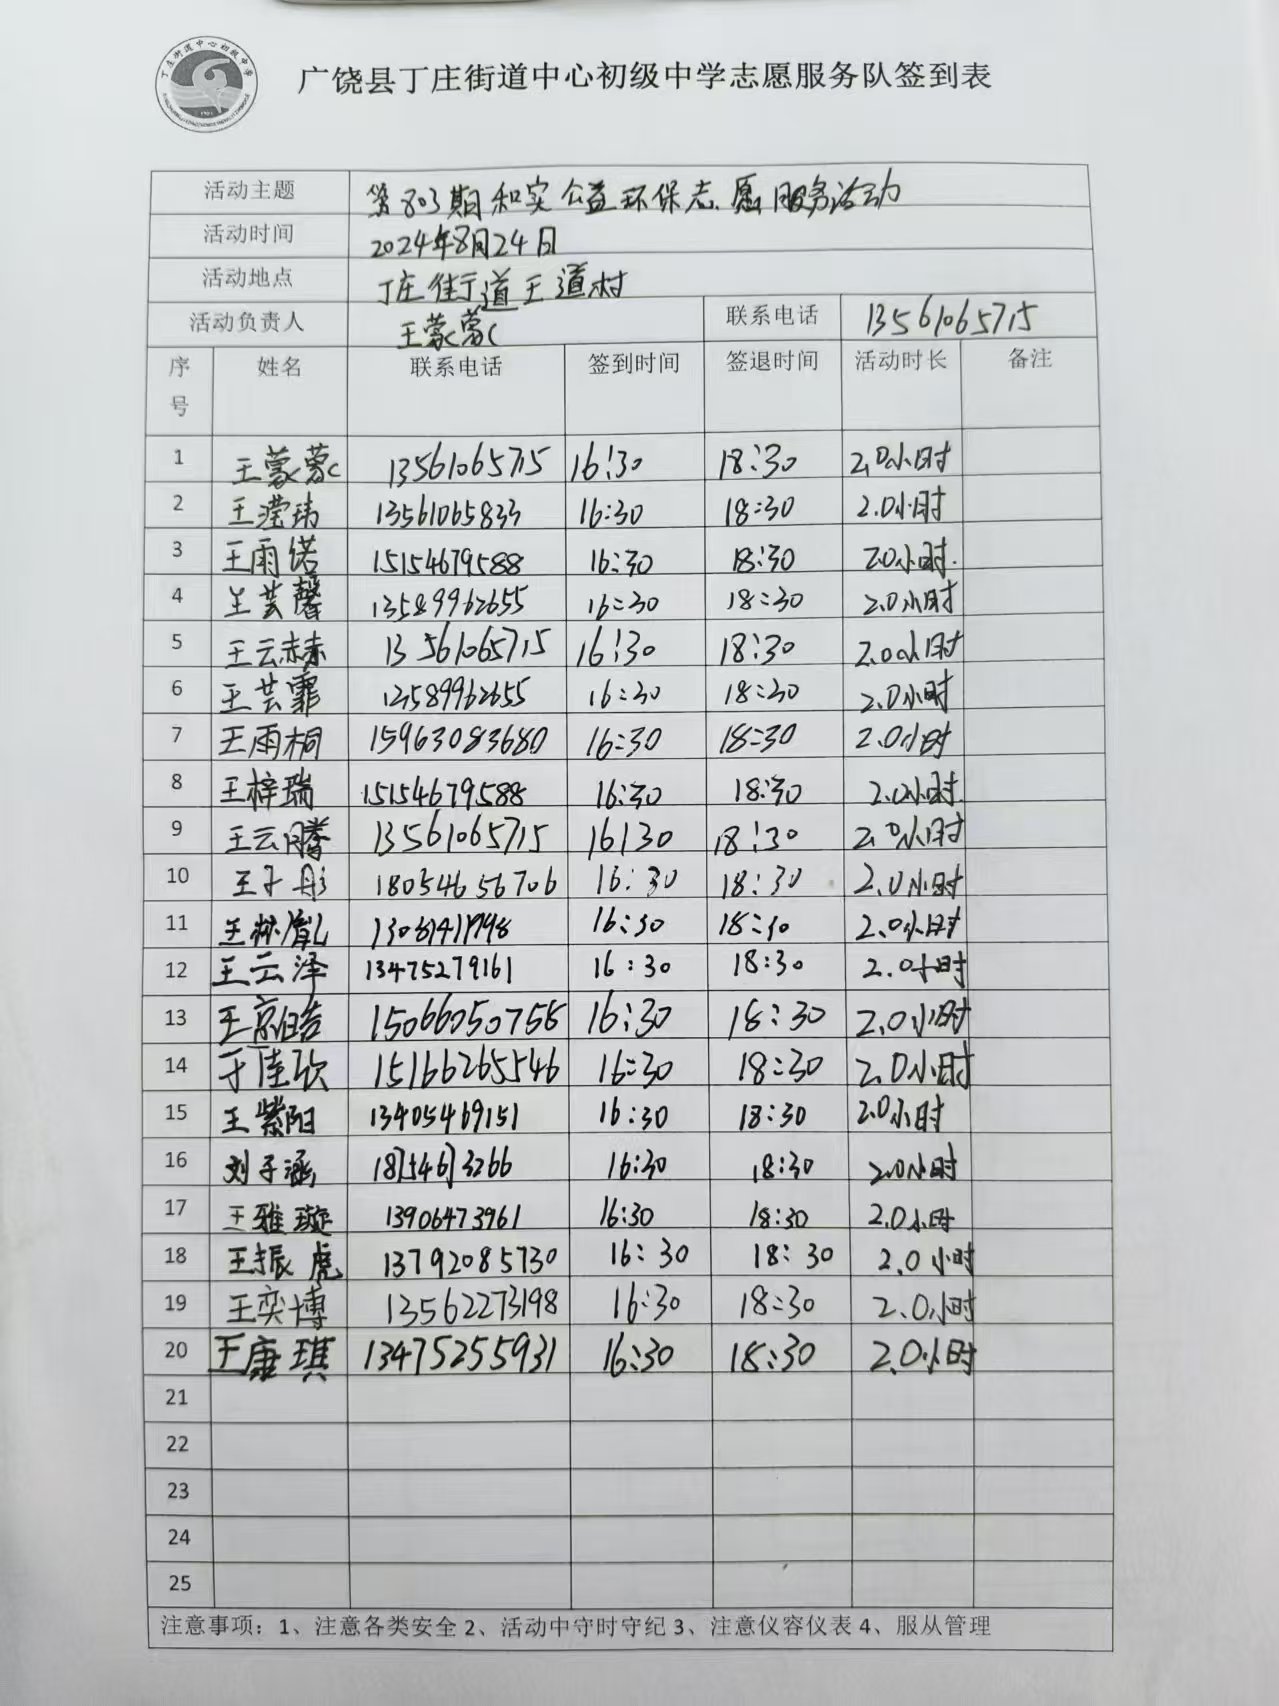 丁庄街道中心初级中学
广饶县丁庄街道中心初级中学志愿服务队签到表
活动主题 第803期和实公益环保志愿服务活动
活动时间 2024年8月24日
活动地点 丁庄街道王道村
活动负责人 王蒙蒙 联系电话 13561065715
序号 姓名 联系电话 签到时间 签退时间 活动时长 备注
1 王蒙蒙 13561065715 16:30 18:30 2.0小时
2 王滢玮 13561065833 16:30 18:30 2.0小时
3 王雨诺 15154679588 16:30 18:30 2.0小时.
4 王芸馨 13589962655 16:30 18:30 2.0小时
5 王云赫 13561065715 16:30 18:30 2.0小时
6 王芸霏 13589962655 16:30 18:30 2.0小时
7 王雨桐 15963083680 16:30 18:30 2.0小时
8 王梓瑞 15154679588 16:30 18:30 2.0小时.
9 王云腾 13561065715 16:30 18:30 2.0小时
10 王子彤 18054656706 16:30 18:30 2.0小时
11 王林胤 16:30 18:30 2.0小时
12 王云泽 13475279161 16:30 18:30 2.0小时
13 王京皓 15066050758 16:30 18:30 2.0小时
14 于佳欣 15166265546 16:30 18:30 2.0小时
15 王紫阳 13405469151 16:30 18:30 2.0小时
16 刘子涵 16:30 18:30 2.0小时
17 王雅璇 13906473961 16:30 18:30 2.0小时
18 王振虎 13792085730 16:30 18:30 2.0小时
19 王奕博 13562273198 16:30 18:30 2.0小时
20 王康琪 13475255931 16:30 18:30 2.0小时
21
22
23
24
25
注意事项：1、注意各类安全 2、活动中守时守纪 3、注意仪容仪表 4、服从管理